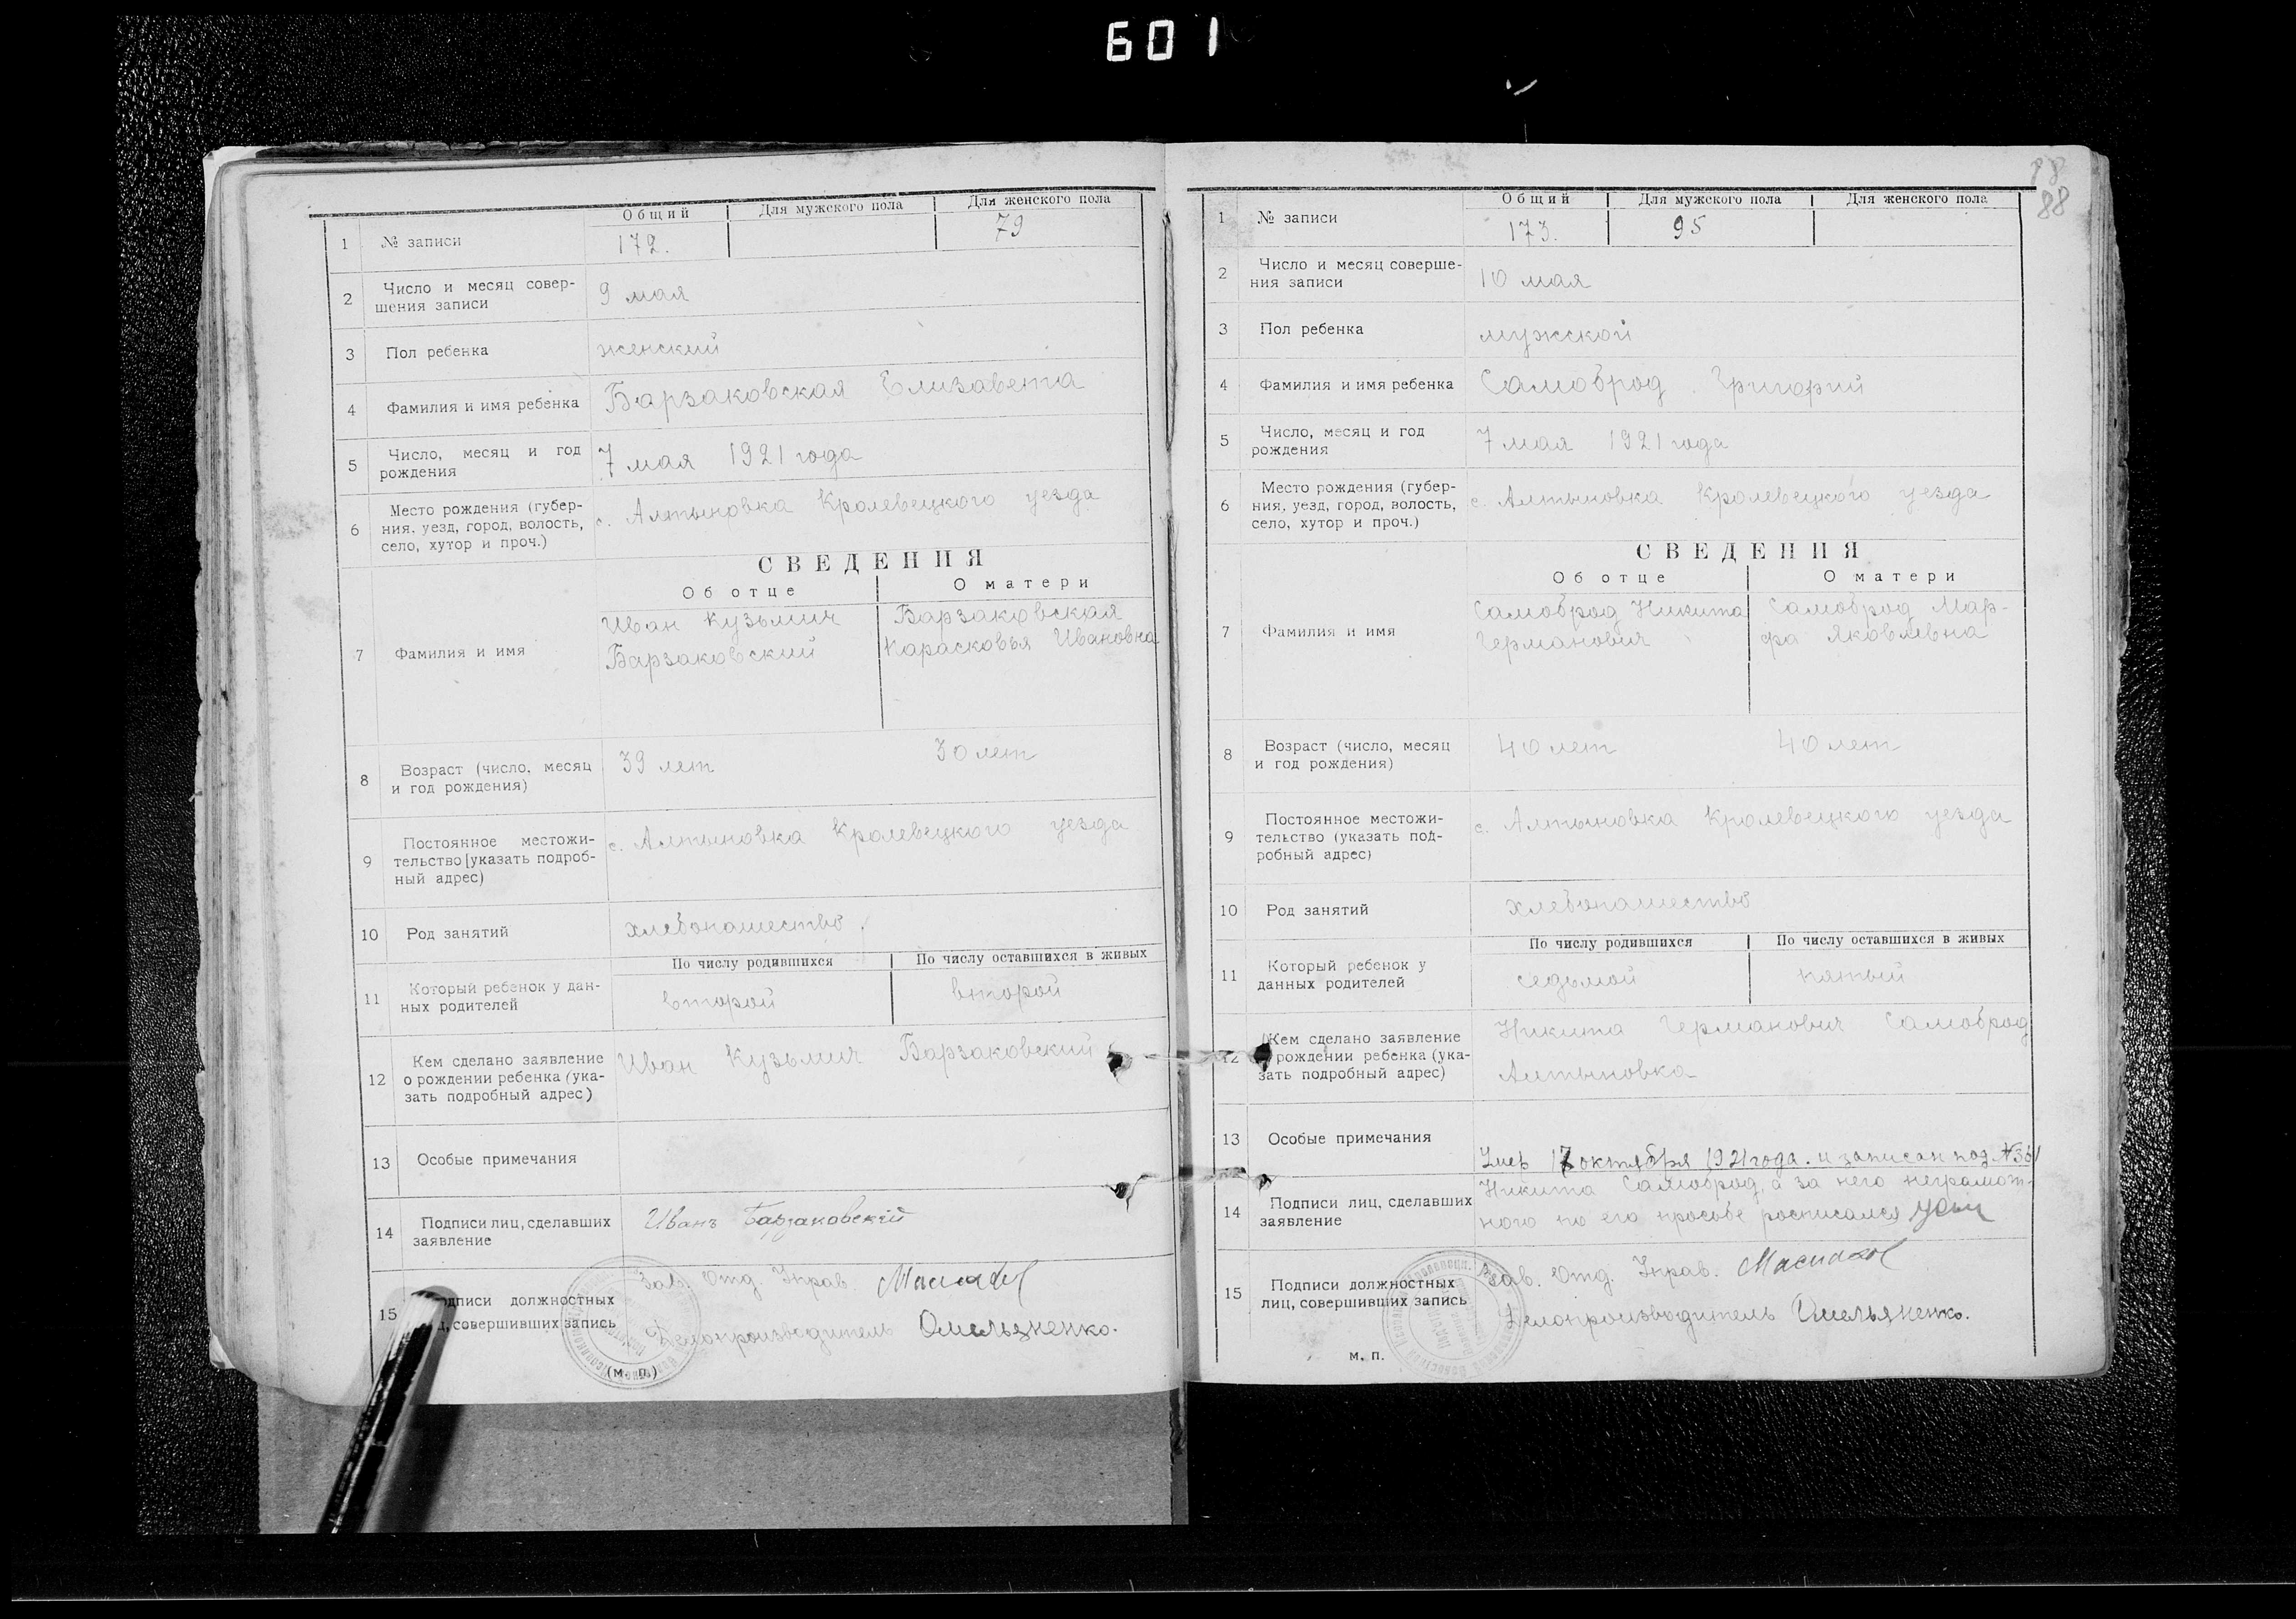 601
Общий Для мужского пола Для женского пола
1 № записи 172. 79
2 Число и месяц совер-
шения записи
9 мая
3 Пол ребенка женский
4 Фамилия и имя ребенка Барзаковская Елизавета
5 Число, месяц и год
рождения
7 мая 1921 года
6 Место рождения (губер-
ния, уезд, город, волость,
село, хутор и проч.)
с. Алтыновка Кролевецкого уезда
СВЕДЕНИЯ
Об отце О матери
7 Фамилия и имя
Иван Кузьмич Барзаковская
Барзаковский Парасковья Ивановна
8 Возраст (число, месяц
и год рождения)
39 лет 30 лет
9 Постоянное местожи-
тельство [указать подроб-
ный адрес)
с. Алтыновка Кролевецкого уезда
10 Род занятий хлебопашество.
По числу родившихся По числу оставшихся в живых
11 Который ребенок у дан-
ных родителей
второй второй
12 Кем сделано заявление
о рождении ребенка (ука-
зать подробный адрес)
Иван Кузьмич Барзаковский
13 Особые примечания
14 Подписи лиц, сделавших
заявление
Иванъ Барзаковскій
15 Подписи должностных
лиц, совершивших запись
Зав. Отд. Управ.
Делопроизводитель Омельяненко.
(м. п.)
88
88
Общий Для мужского пола Для женского пола
1 № записи 173. 95
2 Число и месяц соверше-
ния записи
10 мая
3 Пол ребенка мужской
4 Фамилия и имя ребенка Самоврод Григорий
5 Число, месяц и год
рождения
7 мая 1921 года
6 Место рождения (губер-
ния, уезд, город, волость,
село, хутор и проч.)
с. Алтыновка Кролевецкого уезда
СВЕДЕНИЯ
Об отце О матери
7 Фамилия и имя
Самоврод Никита Самоврод Мар-
Германович фа Яковлевна
8 Возраст (число, месяц
и год рождения)
40 лет 40 лет
9 Постоянное местожи-
тельство (указать под-
робный адрес)
с. Алтыновка Кролевецкого уезда
10 Род занятий хлебопашество
По числу родившихся По числу оставшихся в живых
11 Который ребенок у
данных родителей
седьмой пятый
12 Кем сделано заявление
рождении ребенка (ука-
зать подробный адрес)
Никита Германович Самоврод
Алтыновка
13 Особые примечания
Умер 17 октября 1921 года. и записан под №361
14 Подписи лиц, сделавших
заявление
Никита Самоврод, а за него неграмот-
ного по его просьбе росписался
15 Подписи должностных
лиц, совершивших запись
Зав. Отд. Управ.
Делопроизводитель Омельяненко.
м. п.